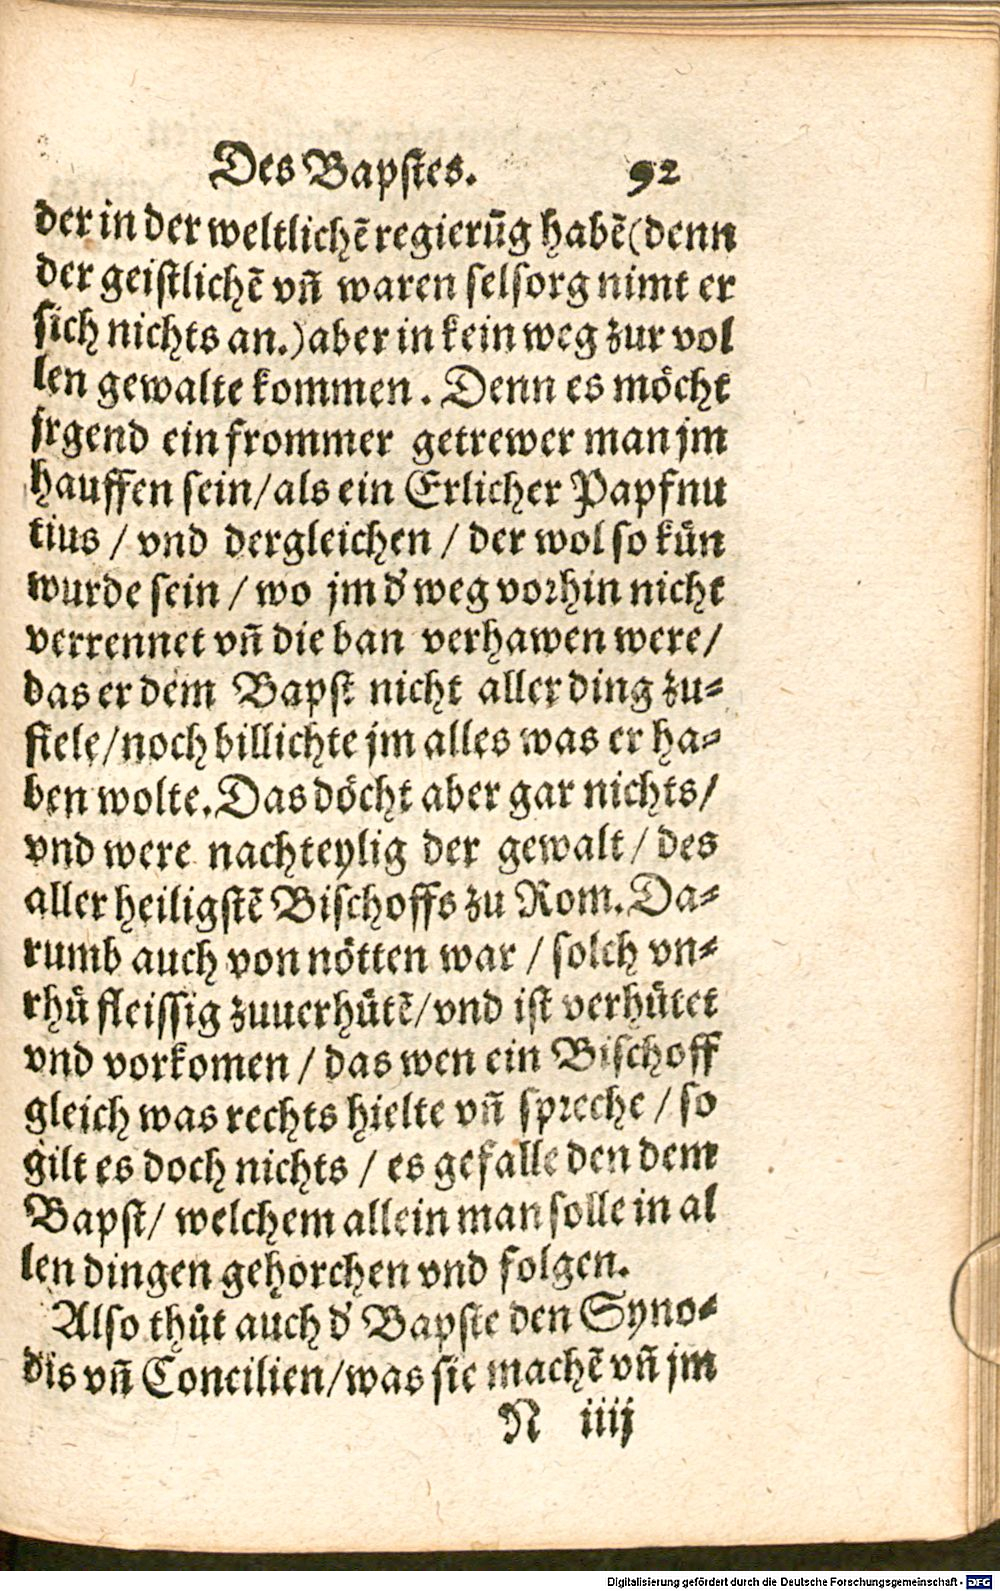 Des Bapstes. 92
der in der weltlichẽ regierũg habẽ (denn
der geistlichẽ vñ waren selsorg nimt er
sich nichts an.) aber in kein weg zur vol
len gewalte kommen. Denn es möcht
jrgend ein frommer getrewer man jm
hauffen sein / als ein Erlicher Papfnu
tius / vnd dergleichen / der wol so kün
wurde sein / wo jm d' weg vorhin nicht
verrennet vñ die ban verhawen were /
das er dem Bapst nicht aller ding zu-
fiele / noch billichte jm alles was er ha-
ben wolte. Das döcht aber gar nichts /
vnd were nachteylig der gewalt / des
aller heiligstẽ Bischoffs zu Rom. Da-
rumb auch von nötten war / solch vn-
rhů fleissig zuuerhütẽ / vnd ist verhütet
vnd vorkomen / das wen ein Bischoff
gleich was rechts hielte vñ spreche / so
gilt es doch nichts / es gefalle den dem
Bapst / welchem allein man solle in al
len dingen gehorchen vnd folgen.
Also thůt auch d' Bapste den Syno-
dis vñ Concilien / was sie machẽ vñ jm
N iiij
Digitalisierung gefördert durch die Deutsche Forschungsgemeinschaft - DFG